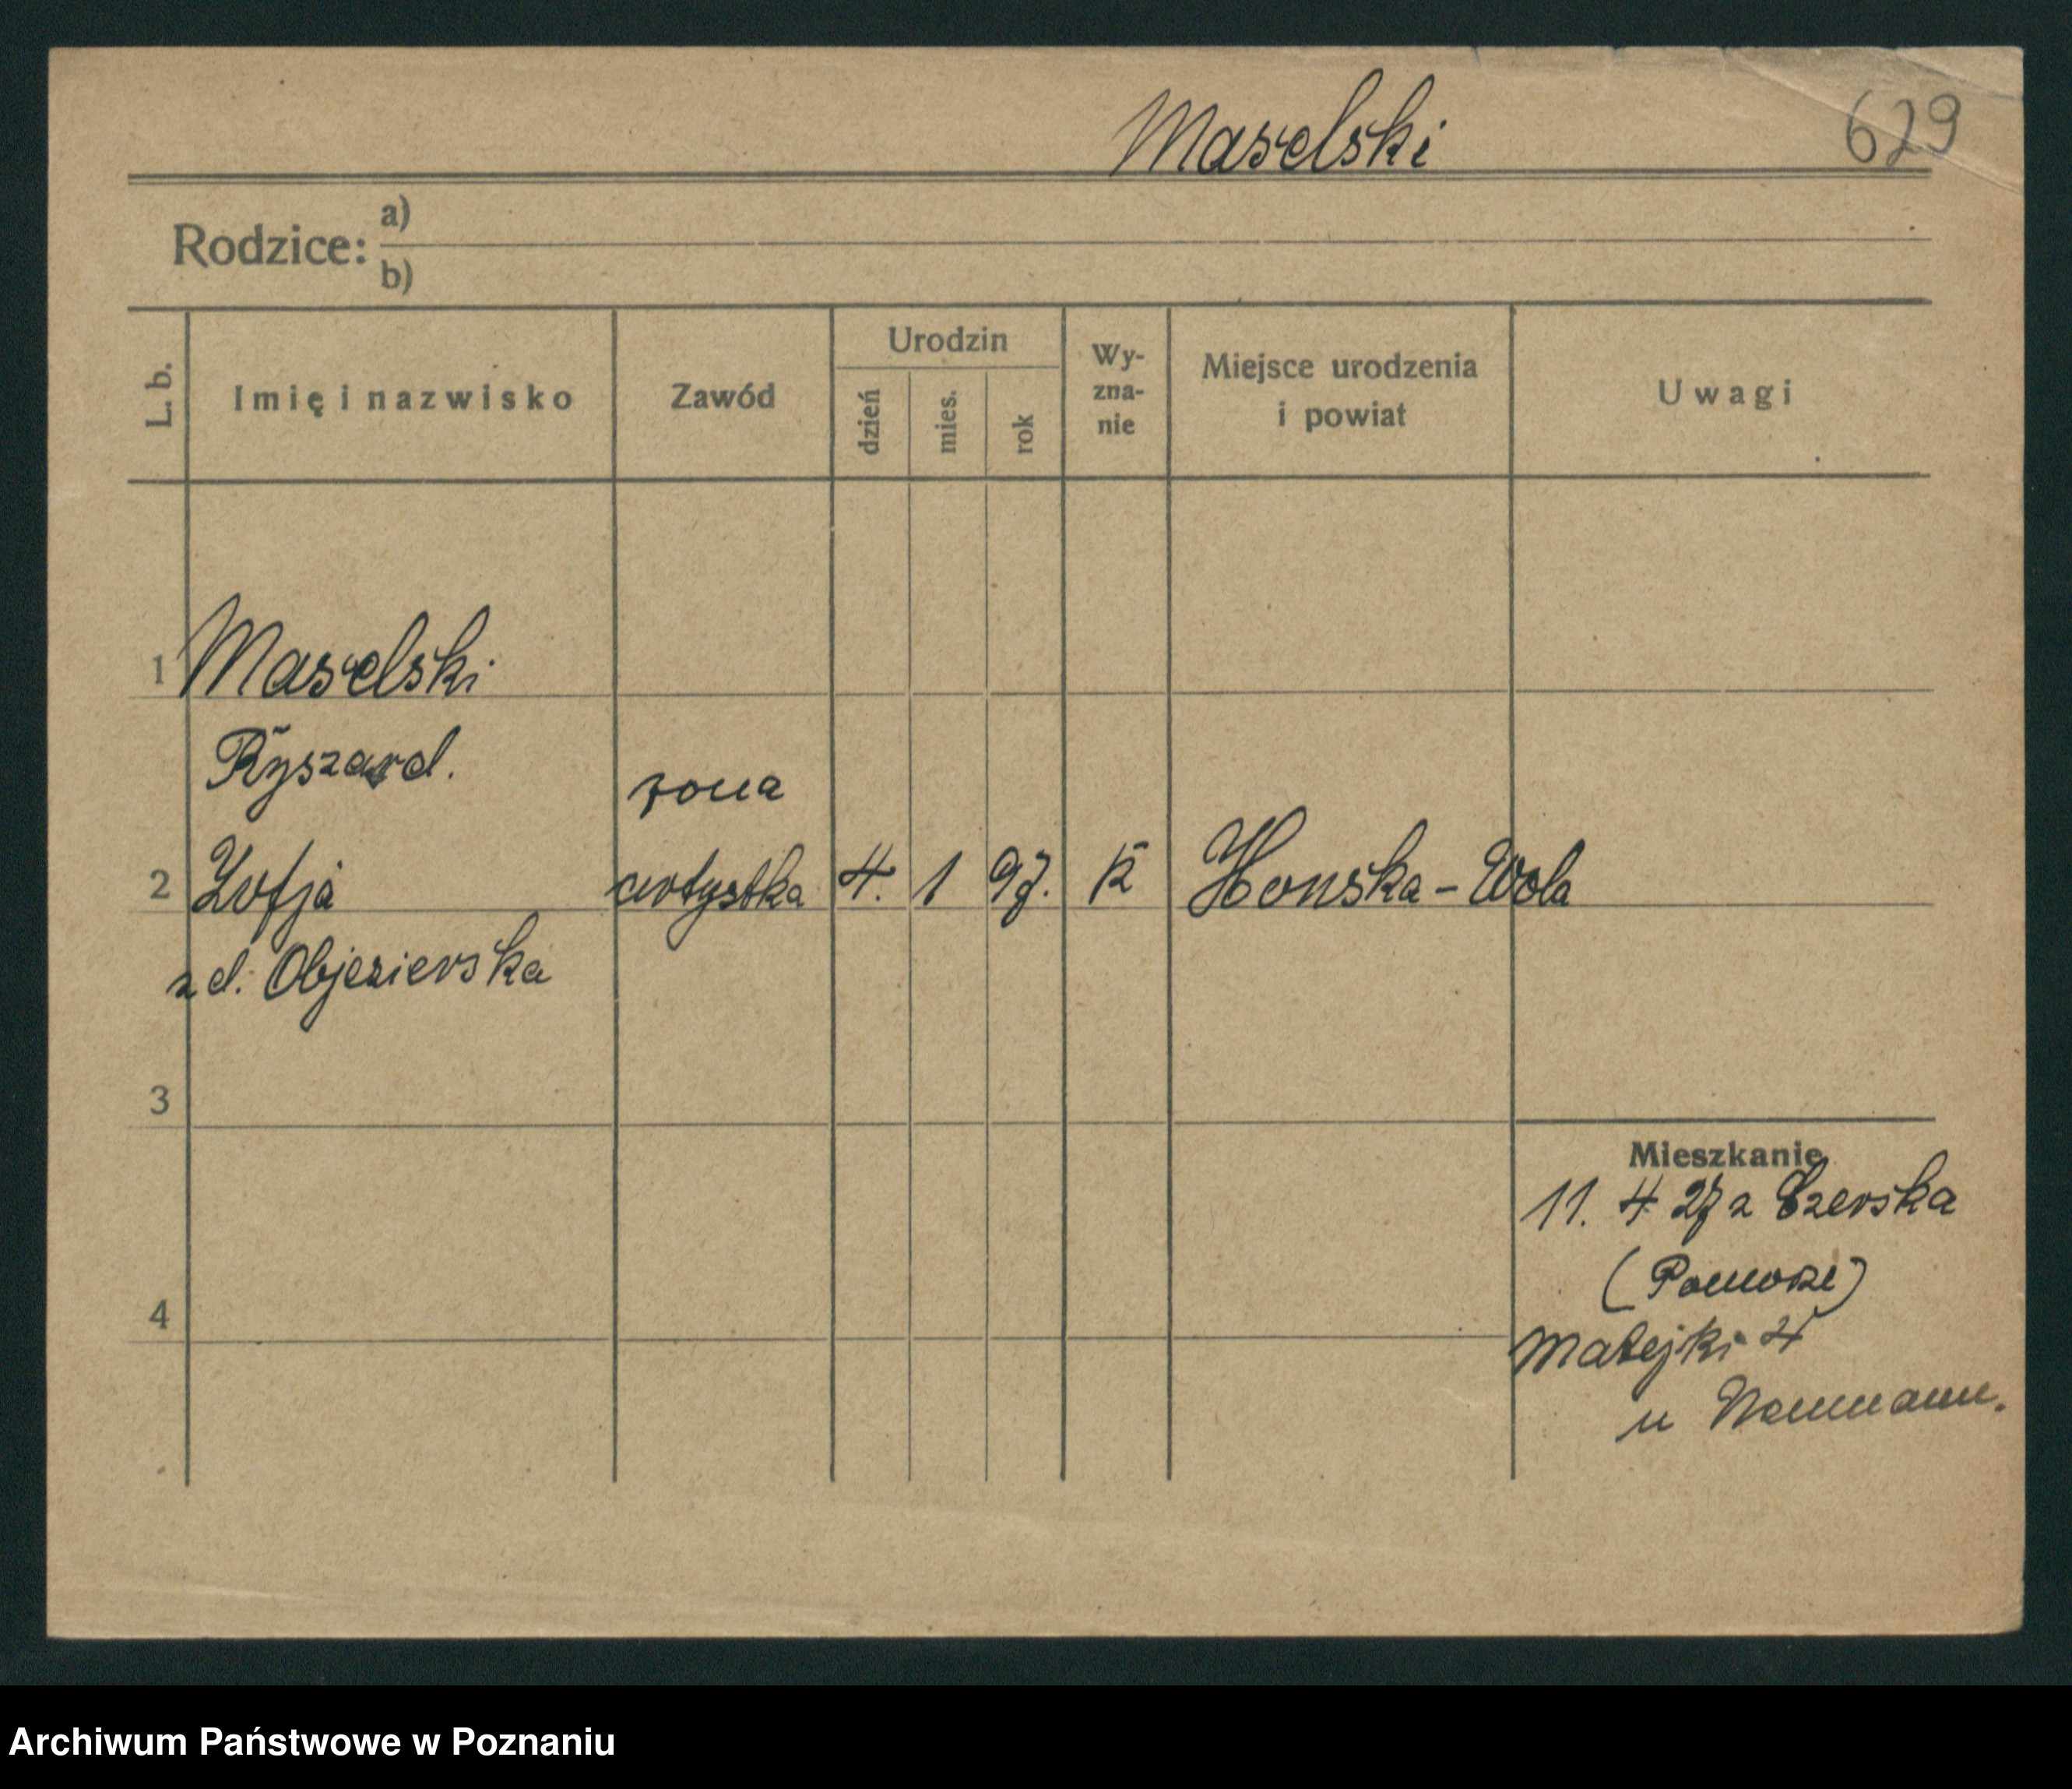 Maselski 629
Rodzice: a)
b)
L. b. Imię i nazwisko Zawód Urodzin dzień mies. rok Wy-zna-nie Miejsce urodzenia i powiat Uwagi
1 Maselski
Ryszard.
żona
2 Zofja artystka 4. 1 97. k Honska - Wola
zd. Objezierska
3
Mieszkanie
11. 4 27 z Czerska
(Pomorze)
4
Matejki 4
u Neumann.
Archiwum Państwowe w Poznaniu